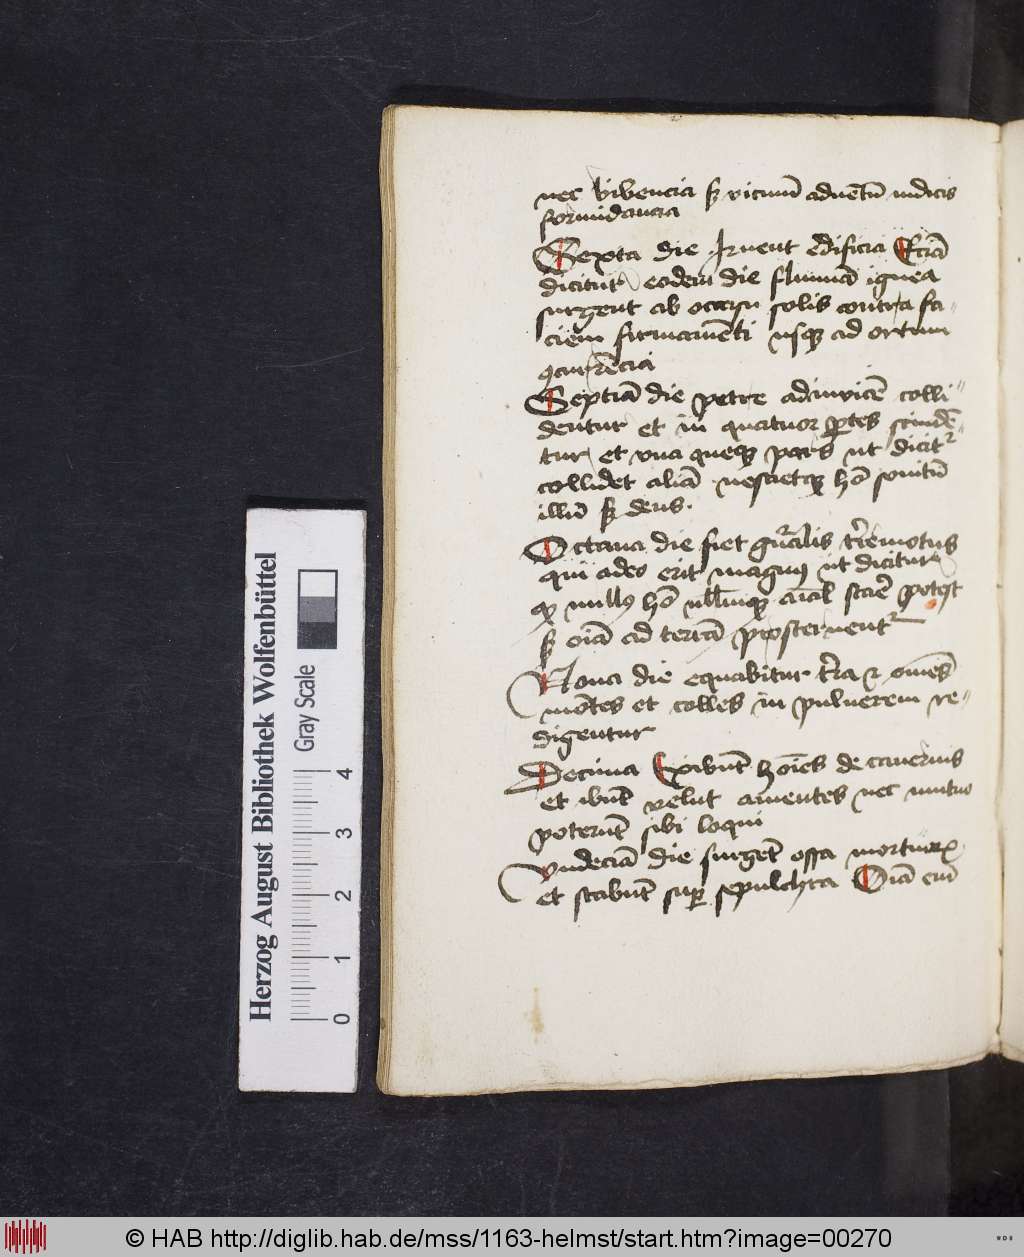 nec bibencia sꝫ vicinũ aduẽtũ iudicis
formidancia
Sexta die Iruent edificia Eciã
dicitur eodem die flumĩa ignea
surgent ab occasu solis contra fa-
ciem firmamẽti usqꝫ ad ortum
ꝯcurrẽcia
Septiã die petre adinuicẽ colli-
dentur et in quatuor ꝑtes scindẽ-
tur et vna queqꝫ pars ut dicit᷑
collidet aliã nescietqꝫ hõ sonitũ
illũ sꝫ deus.
Octaua die fiet gñalis trẽmotus
qui adeo erit magnꝰ ut dicitur
ꝙ nullꝰ hõ nllũqꝫ aĩal stare potest
sꝫ oĩa ad terrã prosternent᷑
Nona die equabitur trã ⁊ om̃es
mõtes et colles in puluerem re-
digentur
Decima Exibũt hoĩes de cauernis
et ibũt velut amentes nec mutuo
poterũt sibi loqui
Vndeciã die surgẽt ossa mortuoꝝ
et stabũt suꝑ sepulchra Oĩa eñ
Herzog August Bibliothek Wolfenbüttel
Gray Scale
0 1 2 3 4
© HAB http://diglib.hab.de/mss/1163-helmst/start.htm?image=00270